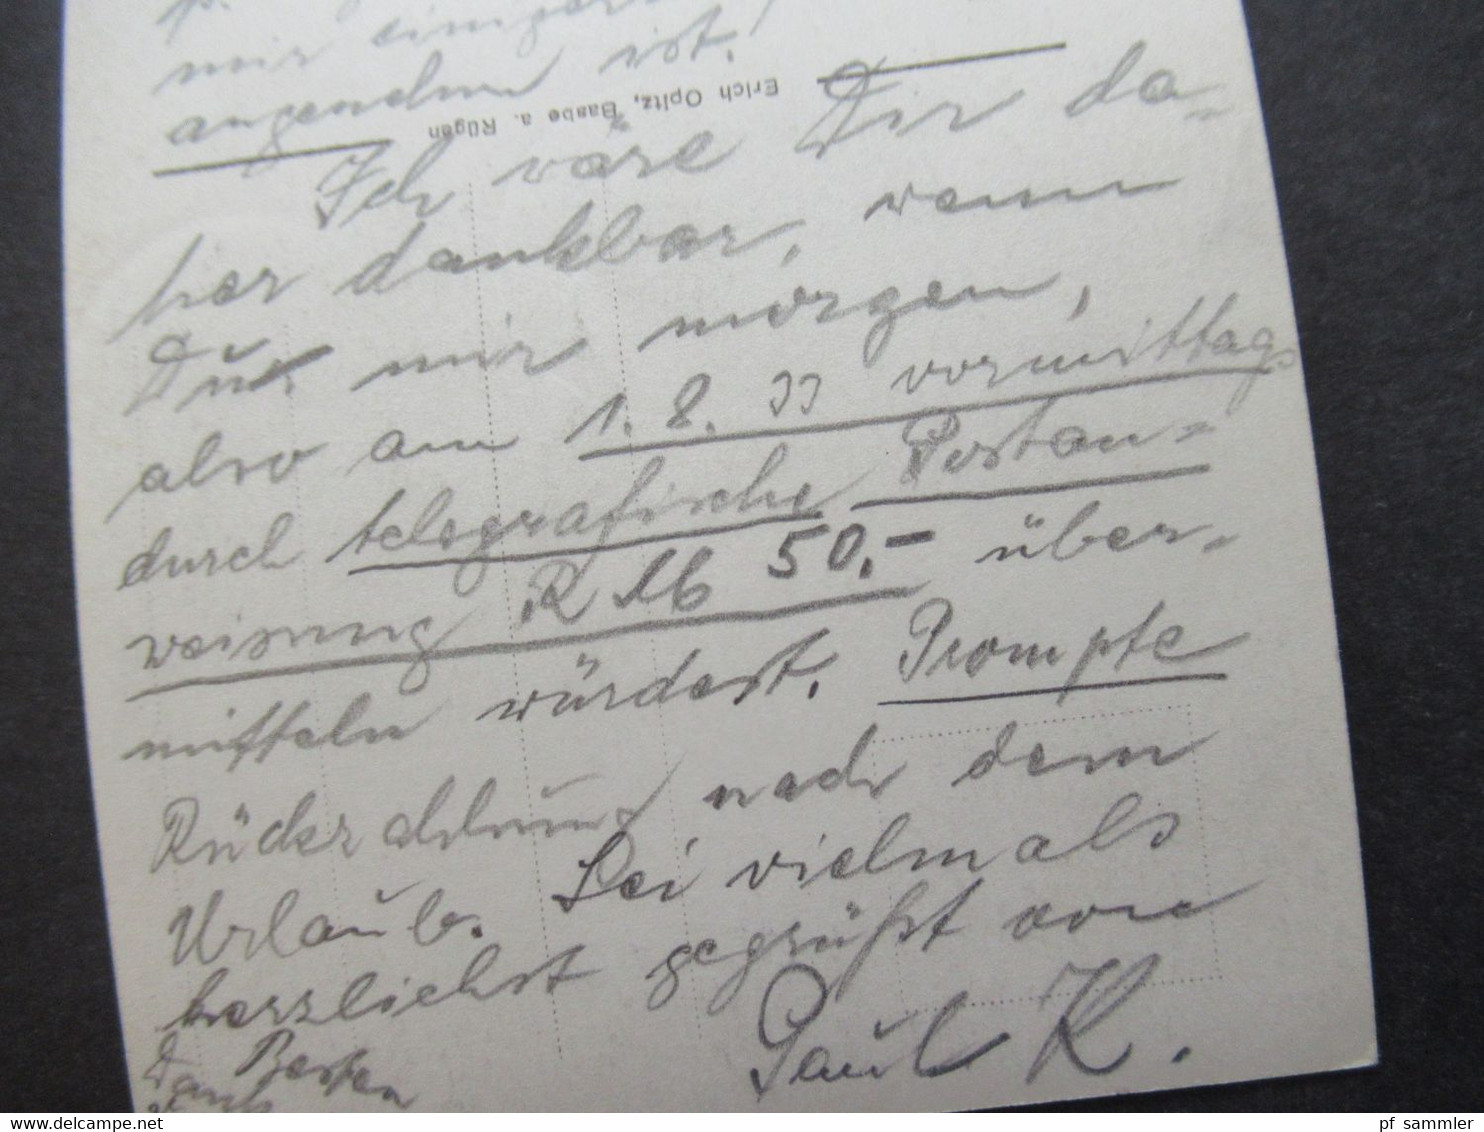 mir
angenehm ist!
Erich Opitz, Baabe a. Rügen
Ich wäre Dir da-
her dankbar, wenn
Du mir morgen,
also am 1. 8. 33 vormittags
durch telegrafische Postan-
weisung RM 50.- über-
mitteln würdest. Prompte
Rückzahlung nach dem
Urlaub. Sei vielmals
herzlichst gegrüßt von
Paul K.
Besten
Dank
pf_sammler
delcampe.net